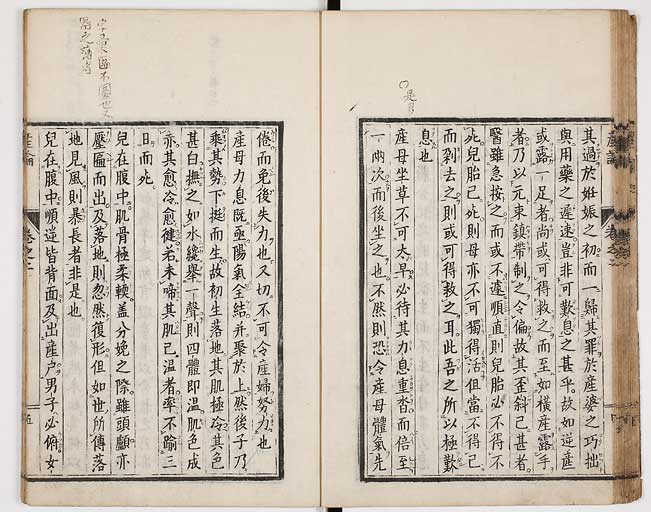 其過於妊娠之初而一歸其罪於産婆之巧拙
與用藥之遲速豈非可歎息之甚乎故如逆産
或露一足者尚或可得救之而至如橫産露手
者乃以元來鎮帶制之令偏故其歪斜已甚者
醫雖急按之而或不遽順直則兒胎必不得不
死兒胎已死則母亦不可獨得活但當不得已
而割去之則或可得救之耳此吾之所以極歎
息也
産母坐草不可太早必待其力息重沓而倍至
一兩次而後坐之也不然則恐令産母體氣先
倦而免後失力也又切不可令産婦努力也
産母力息既亟陽氣全結并聚於上然後子乃
乘其勢下挺而生故初生落地其肌極冷其色
甚白撫之如水纔舉一聲則四體即温肌色成
赤其愈冷愈健若未啼其肌已温者率不踰三
日而死
兒在腹中肌骨極柔輭蓋分娩之際雖頭顱亦
壓匾而出及落地則忽然復形但如世所傳落
地見風則暴長者非是也
兒在腹中順逆皆背面及出産戶男子必俯女
産論
卷之二
五